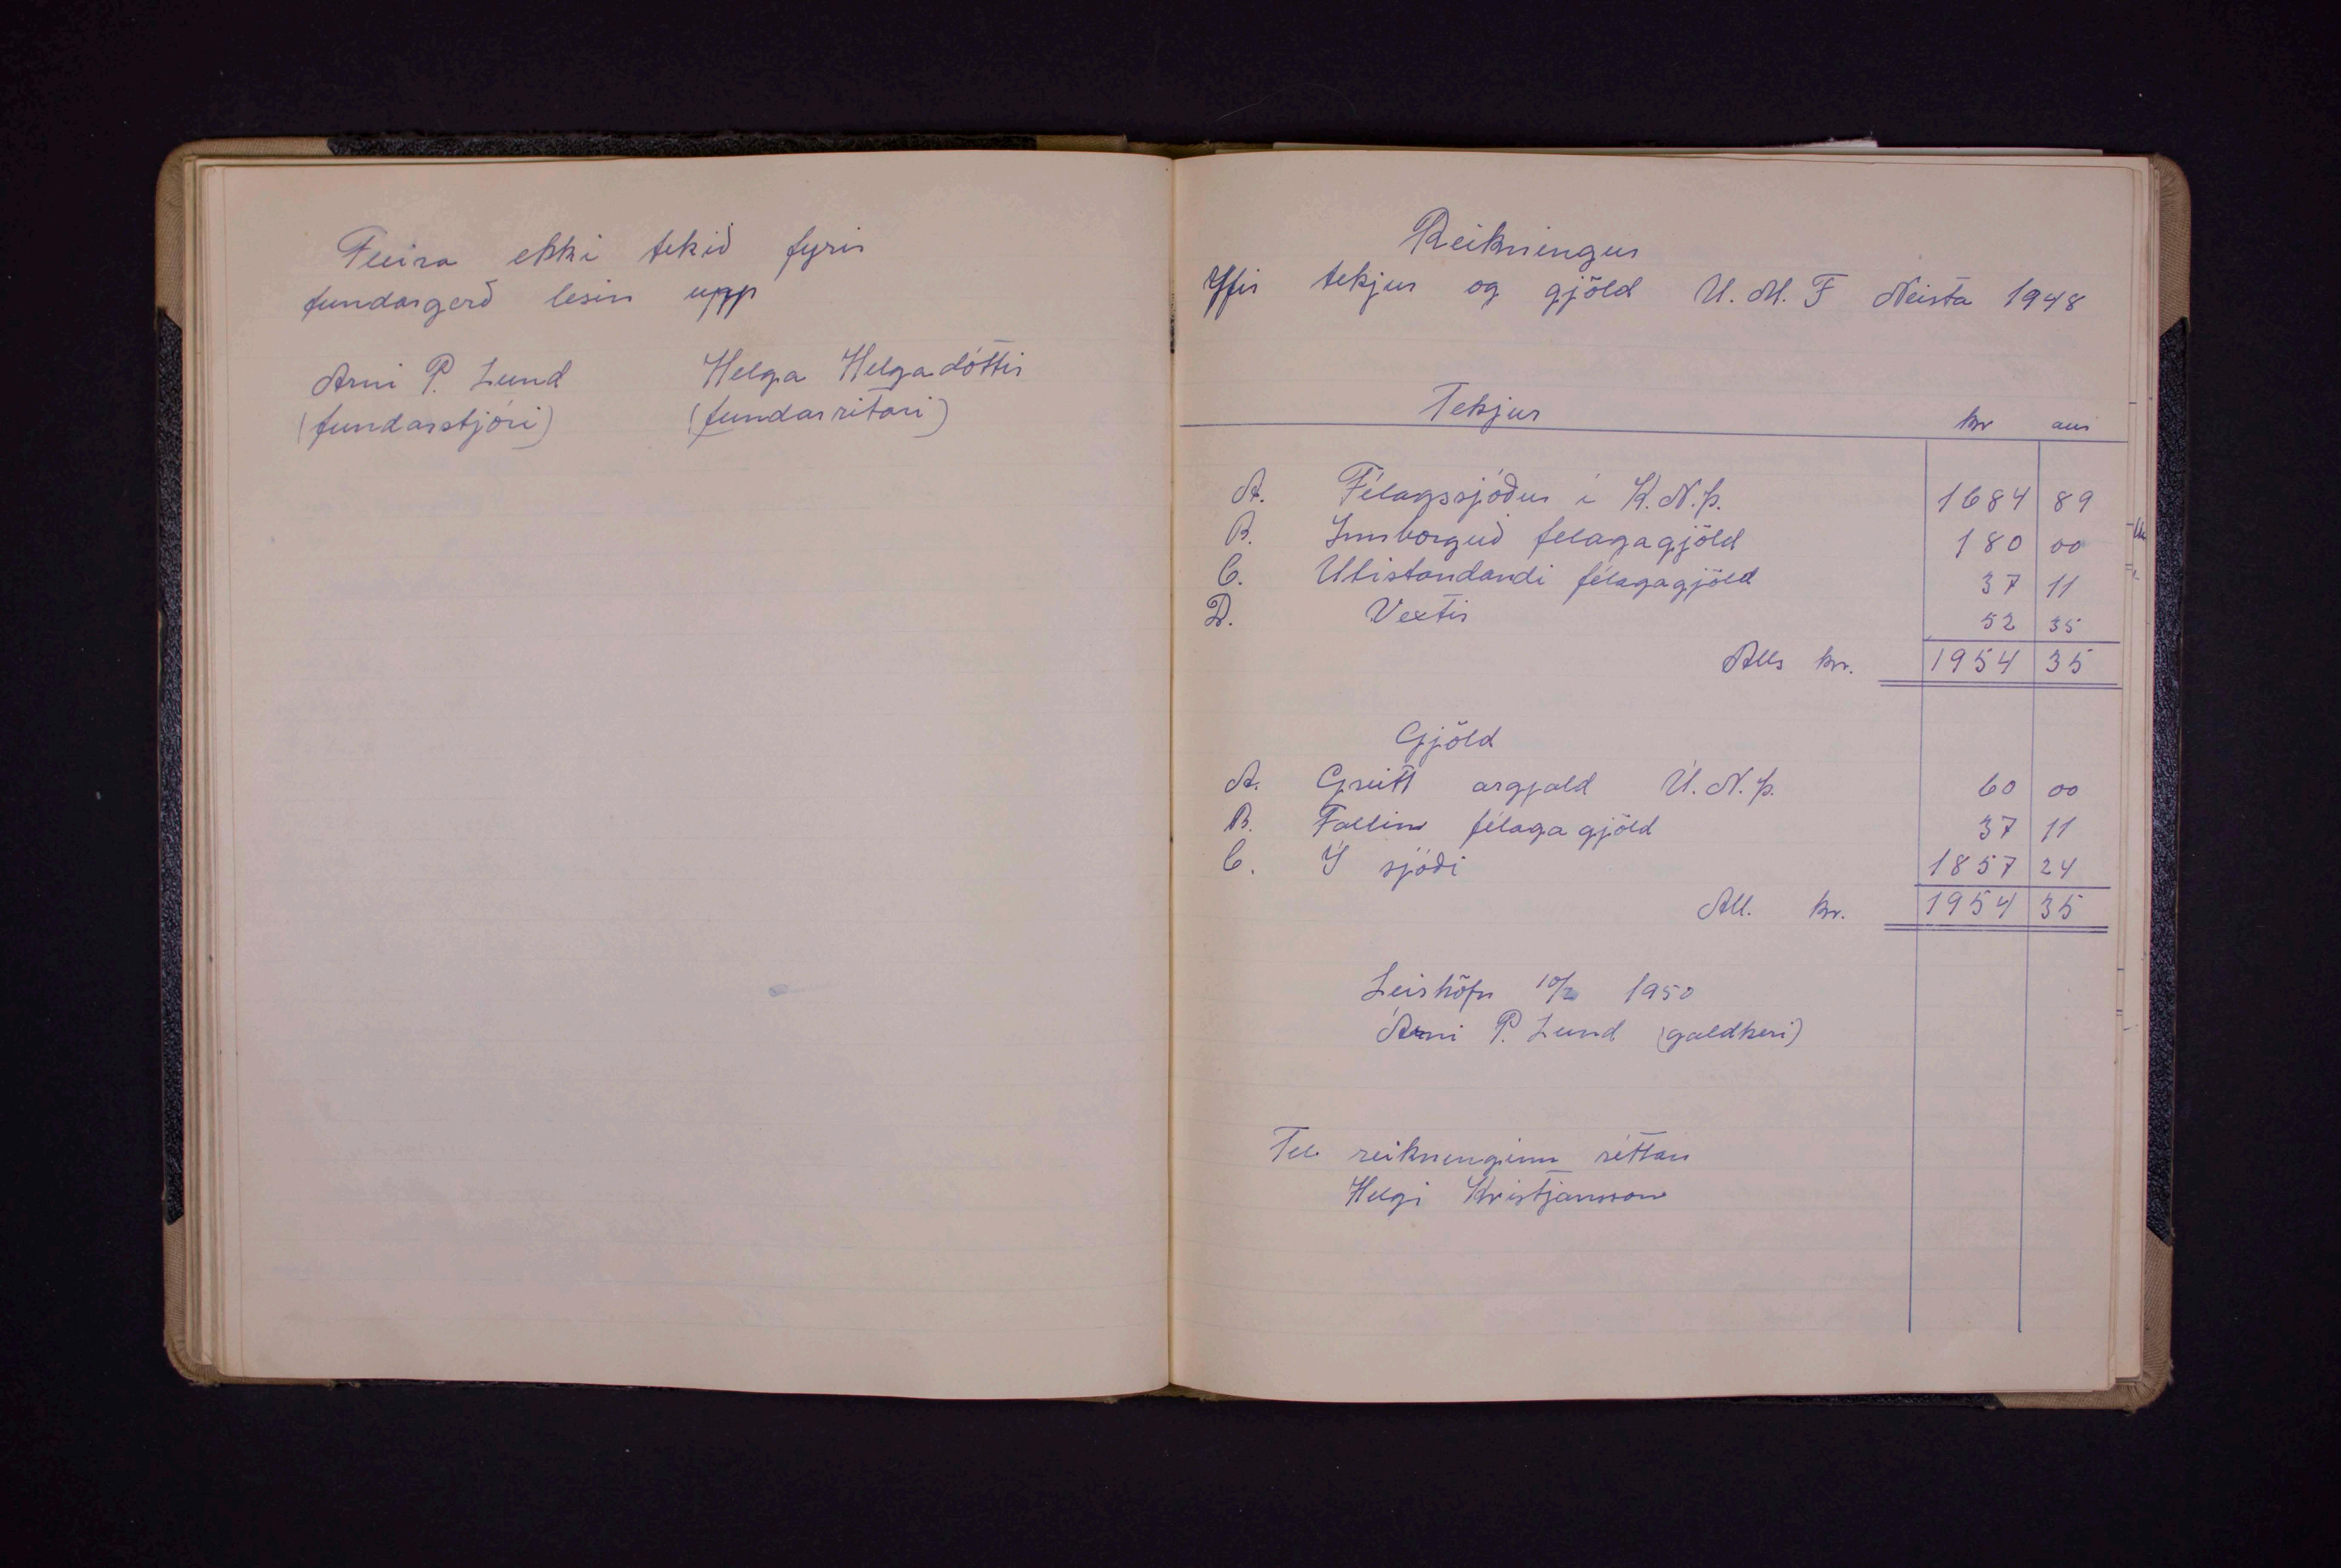 Fleira ekki tekið fyrir
fundargerð lesin upp
Arni P. Lund Helga Helgadóttir
(fundarstjóri) (fundarritari)
Reikningur
Yfir tekjur og gjöld U.M.F Neista 1948
Tekjur kr aur
A. Félagssjóður í K.N.Þ. 1684 89
B. Innborguð felagagjöld 180 00
C. Utistandandi félagagjöld 37 11
D. Vextir 52 35
Alls kr. 1954 35
Gjöld
A. Greitt argjald Ú.N.Þ. 60 00
B. Fallin félagagjöld 37 11
C. Í sjóði 1857 24
All. kr. 1954 35
Leirhöfn 10/2 1950
Árni P. Lund (galdkeri)
Tel reikninginn réttan
Helgi Kristjansson